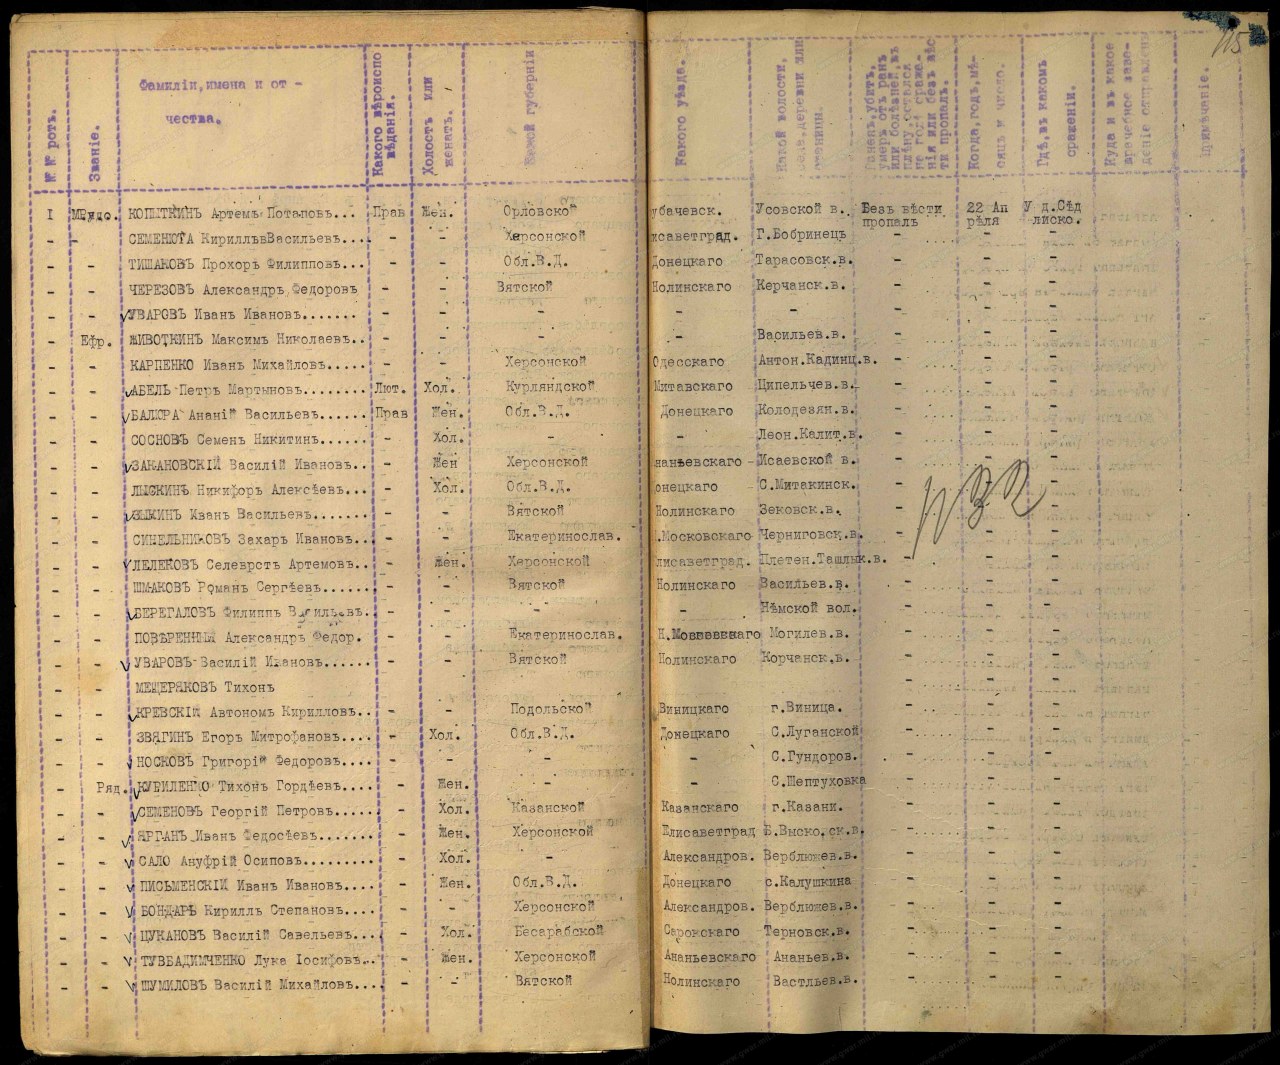 115
№№ ротъ. Званіе. Фамиліи, имена и отчества. Какого вѣроисповѣданія. Холостъ или женатъ. Какой губерніи Какого уѣзда. Какой волости, Когда, годъ, мѣсяцъ и число. Гдѣ, въ какомъ сраженіи. Куда и въ какое врачебное заведеніе отправленъ Примѣчаніе.
I КОПЫТКИНЪ Артемъ Потаповъ... Прав Жен. Орловской Усовской в. Безъ вѣсти пропалъ 22 Апрѣля У д.Сѣдлиско.
- - СЕМЕНЮТА КириллъвВасильевъ... - - Херсонской исаветград. Г.Бобринецъ - - -
- - ТИШАКОВЪ Прохоръ Филипповъ... - - Обл.В.Д. Донецкаго Тарасовск.в. - - -
- - ЧЕРЕЗОВЪ Александръ Федоровъ - - Вятской Нолинскаго Керчанск.в. - - -
- - УВАРОВЪ Иванъ Ивановъ....... - - - - - - - -
- Ефр. ЖИВОТКИНЪ Максимъ Николаевъ.. - - - - Васильев.в. - - -
- - КАРПЕНКО Иванъ Михайловъ..... - - Херсонской Одесскаго Антон.Кадинц.в. - - -
- - АБЕЛЬ Петръ Мартыновъ........ Лют. Хол. Курляндской Митавскаго Ципельчев.в. - - -
- - БАЛЮРА Ананій Васильевъ...... Прав Жен. Обл.В.Д. Донецкаго Колодезян.в. - - -
- - СОСНОВЪ Семенъ Никитинъ...... - Хол. - - Леон.Калит.в. - - -
- - ЗАКАНОВСКІЙ Василій Ивановъ.. - Жен Херсонской наньевскаго Исаевской в. - - -
- - ЛЫСКИНЪ Никифоръ Алексѣевъ... - Хол. Обл.В.Д. онецкаго С.Митакинск. - - -
- - ЗЫКИНЪ Иванъ Васильевъ....... - - Вятской Нолинскаго Зековск.в. - - -
- - СИНЕЛЬНИКОВЪ Захаръ Ивановъ.. - - Екатеринослав. Московскаго Черниговск.в. - - -
- - ЛЕЛЕКОВЪ Селеверстъ Артемовъ.. - Жен. Херсонской лисаветград. Плетен.Ташлык.в. - - -
- - ШМАКОВЪ Романъ Сергѣевъ...... - - Вятской Нолинскаго Васильев.в. - - -
- - БЕРЕГАЛОВЪ Филиппъ Васильевъ. - - - - Нѣмской вол. - - -
- - ПОВѢРЕННЫЙ Александръ Федор. - - Екатеринослав. Могилев.в. - - -
- - УВАРОВЪ Василій Ивановъ...... - - Вятской Нолинскаго Корчанск.в. - - -
- - МЕЩЕРЯКОВЪ Тихонъ - - -
- - КРЕВСКІЙ Автономъ Кирилловъ.. - - Подольской Виницкаго г.Виница. - - -
- - ЗВЯГИНЪ Егоръ Митрофановъ.... - Хол. Обл.В.Д. Донецкаго С.Луганской - - -
- - НОСКОВЪ Григорій Федоровъ.... - - - - С.Гундоров. - - -
- Ряд. КУРИЛЕНКО Тихонъ Гордѣевъ.... - Жен. - - С.Шептуховка - - -
- - СЕМЕНОВЪ Георгій Петровъ..... - Хол. Казанской Казанскаго г.Казани. - - -
- - ЯРГАНЪ Иванъ Федосѣевъ....... - Жен. Херсонской Елисаветград Б.Выско.ск.в. - - -
- - САЛО Ануфрій Осиповъ......... - Хол. - Александров. Верблюжев.в. - - -
- - ПИСЬМЕНСКІЙ Иванъ Ивановъ.... - Жен. Обл.В.Д. Донецкаго с.Калушкина - - -
- - БОНДАРЬ Кириллъ Степановъ.... - - Херсонской Александров. Верблюжев.в. - - -
- - ЦУКАНОВЪ Василій Савельевъ... - Хол. Бесарабской Сарокскаго Терновск.в. - - -
- - ТУВБАДИМЧЕНКО Лука Іосифовъ.. - Жен. Херсонской Ананьевскаго Ананьев.в. - - -
- - ШУМИЛОВЪ Василій Михайловъ.... - - Вятской Нолинскаго Вастльев.в. - - -